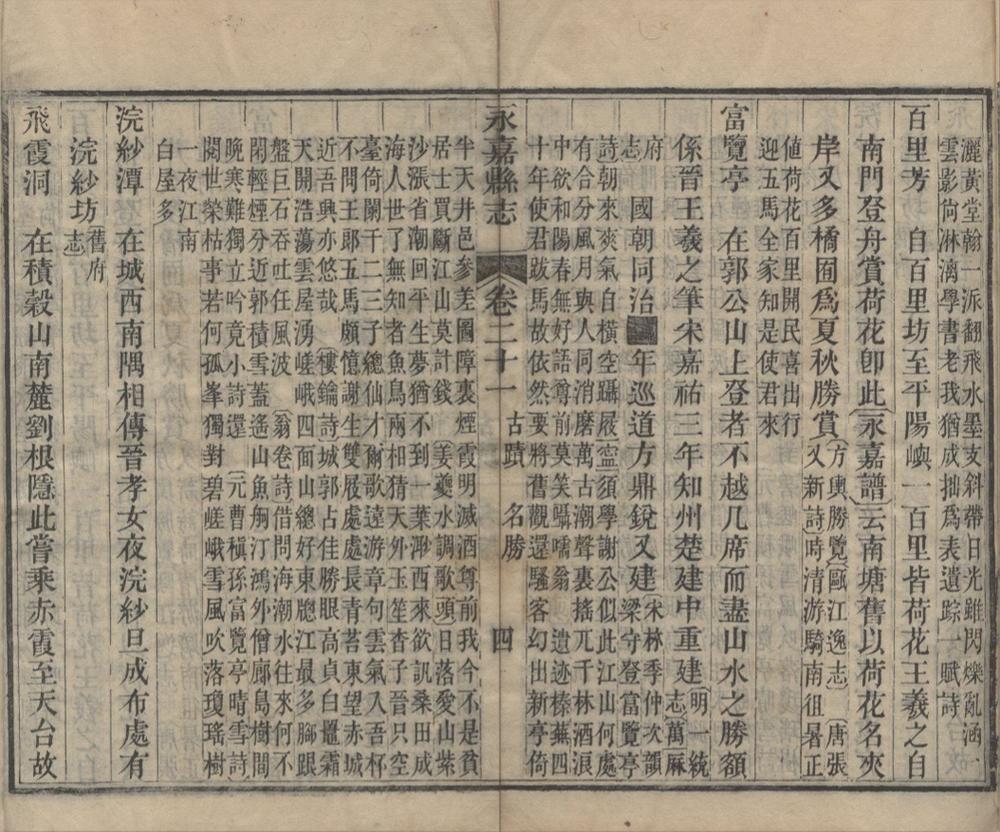 灑黃堂翰一派翻飛水墨支斜帶日光雖閃爍亂涵
雲影尙淋漓學書老我猶成拙爲表遺踪一賦詩
百里芳　自百里坊至平陽嶼一百里皆荷花王羲之自
南門登舟賞荷花卽此永嘉譜云南塘舊以荷花名夾
岸又多橘囿爲夏秋勝賞方輿勝覽又新詩
甌江逸志時清游騎南徂暑正
唐張
値荷花百里開民喜出行
迎五馬全家知是使君來
富覽亭　在郭公山上登者不越几席而盡山水之勝額
係晉王羲之筆宋嘉祐三年知州楚建中重建明一統志萬厤
府志　國朝同治　年巡道方鼎銳又建宋林季仲次韻
梁守登富覽亭
詩朝來爽氣自橫空躡屐須學謝公似此江山何處
有合分風月與人同消磨萬古潮聲裏搖兀千林酒浪
中欲和陽春無好語尊前莫笑囁嚅翁　遺迹榛蕪四
十年使君跋馬故依然要將舊觀還騷客幻出新亭倚
永嘉縣志　卷二十一　古蹟　名勝　四
半天井邑參差圍障裏煙霞明滅酒尊前我今不是貧
居士買斷江山莫計錢　姜夔水調歌頭日落愛山紫
沙漲省潮回平生夢猶不到一葉渺西來欲訊桑田成
海人世了無知者魚鳥兩相猜天外玉笙杳子晉只空
臺倚闌干二三子總仙才爾歌遠游章句雲氣入吾杯
不問王郞五馬頗憶謝生雙屐處處長青苔東望赤城
近吾興亦悠哉　樓鑰詩城郭占佳勝眼高貞白鼉霜
天開浩蕩雲屋湧嵯峨四面山總好東牕江最多腳跟
盤巨石吞吐任風波　翁卷詩借問海潮水往來何不
閑輕煙分近郭積雪蓋遙山魚舸汀鴻外僧廊島樹間
晚寒難獨立吟竟小詩還　元曹稹孫富覽亭晴雪詩
閱世榮枯事若何孤峯獨對碧嵯峨雪風吹落瓊瑤樹
一夜江南
白屋多
浣紗潭　在城西南隅相傳晉孝女夜浣紗旦成布處有
浣紗坊舊府志
飛霞洞　在積穀山南麓劉根隱此嘗乘赤霞至天台故